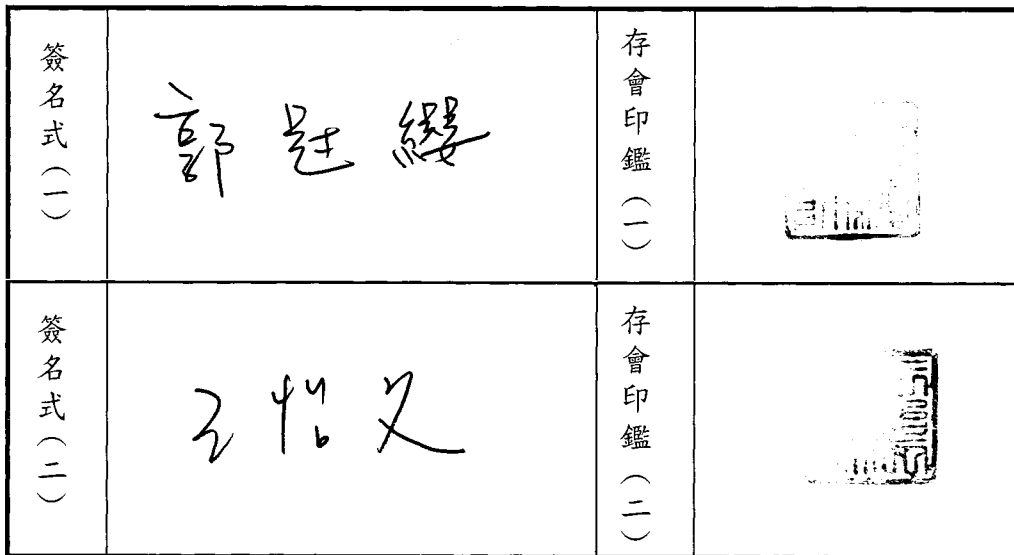 簽名式(一)
郭冠纓
存會印鑑(一)
簽名式(二)
王怡文
存會印鑑(二)